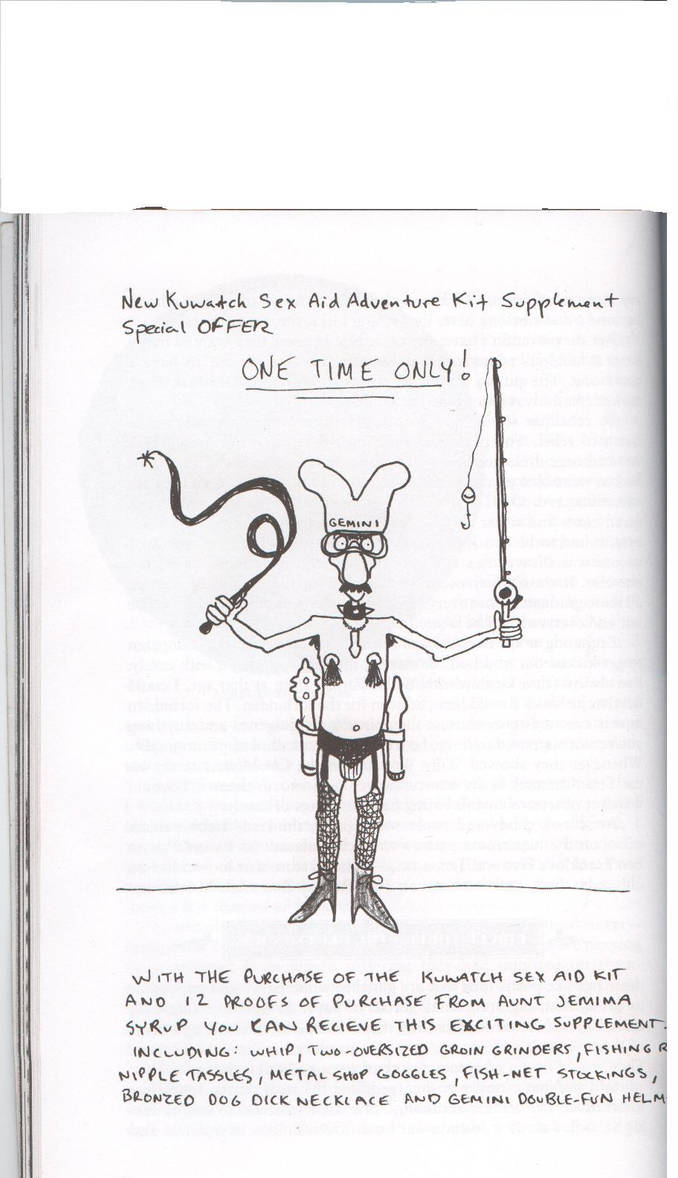 New Kuwatch Sex Aid Adventure Kit Supplement
Special OFFER
ONE TIME ONLY!
GEMINI
WITH THE PURCHASE OF THE KUWATCH SEX AID KIT
AND 12 PROOFS OF PURCHASE FROM AUNT JEMIMA
SYRUP YOU CAN RECIEVE THIS EXCITING SUPPLEMENT.
INCLUDING: WHIP, TWO-OVERSIZED GROIN GRINDERS, FISHING R
NIPPLE TASSLES, METAL SHOP GOGGLES, FISH-NET STOCKINGS,
BRONZED DOG DICK NECKLACE AND GEMINI DOUBLE-FUN HELM